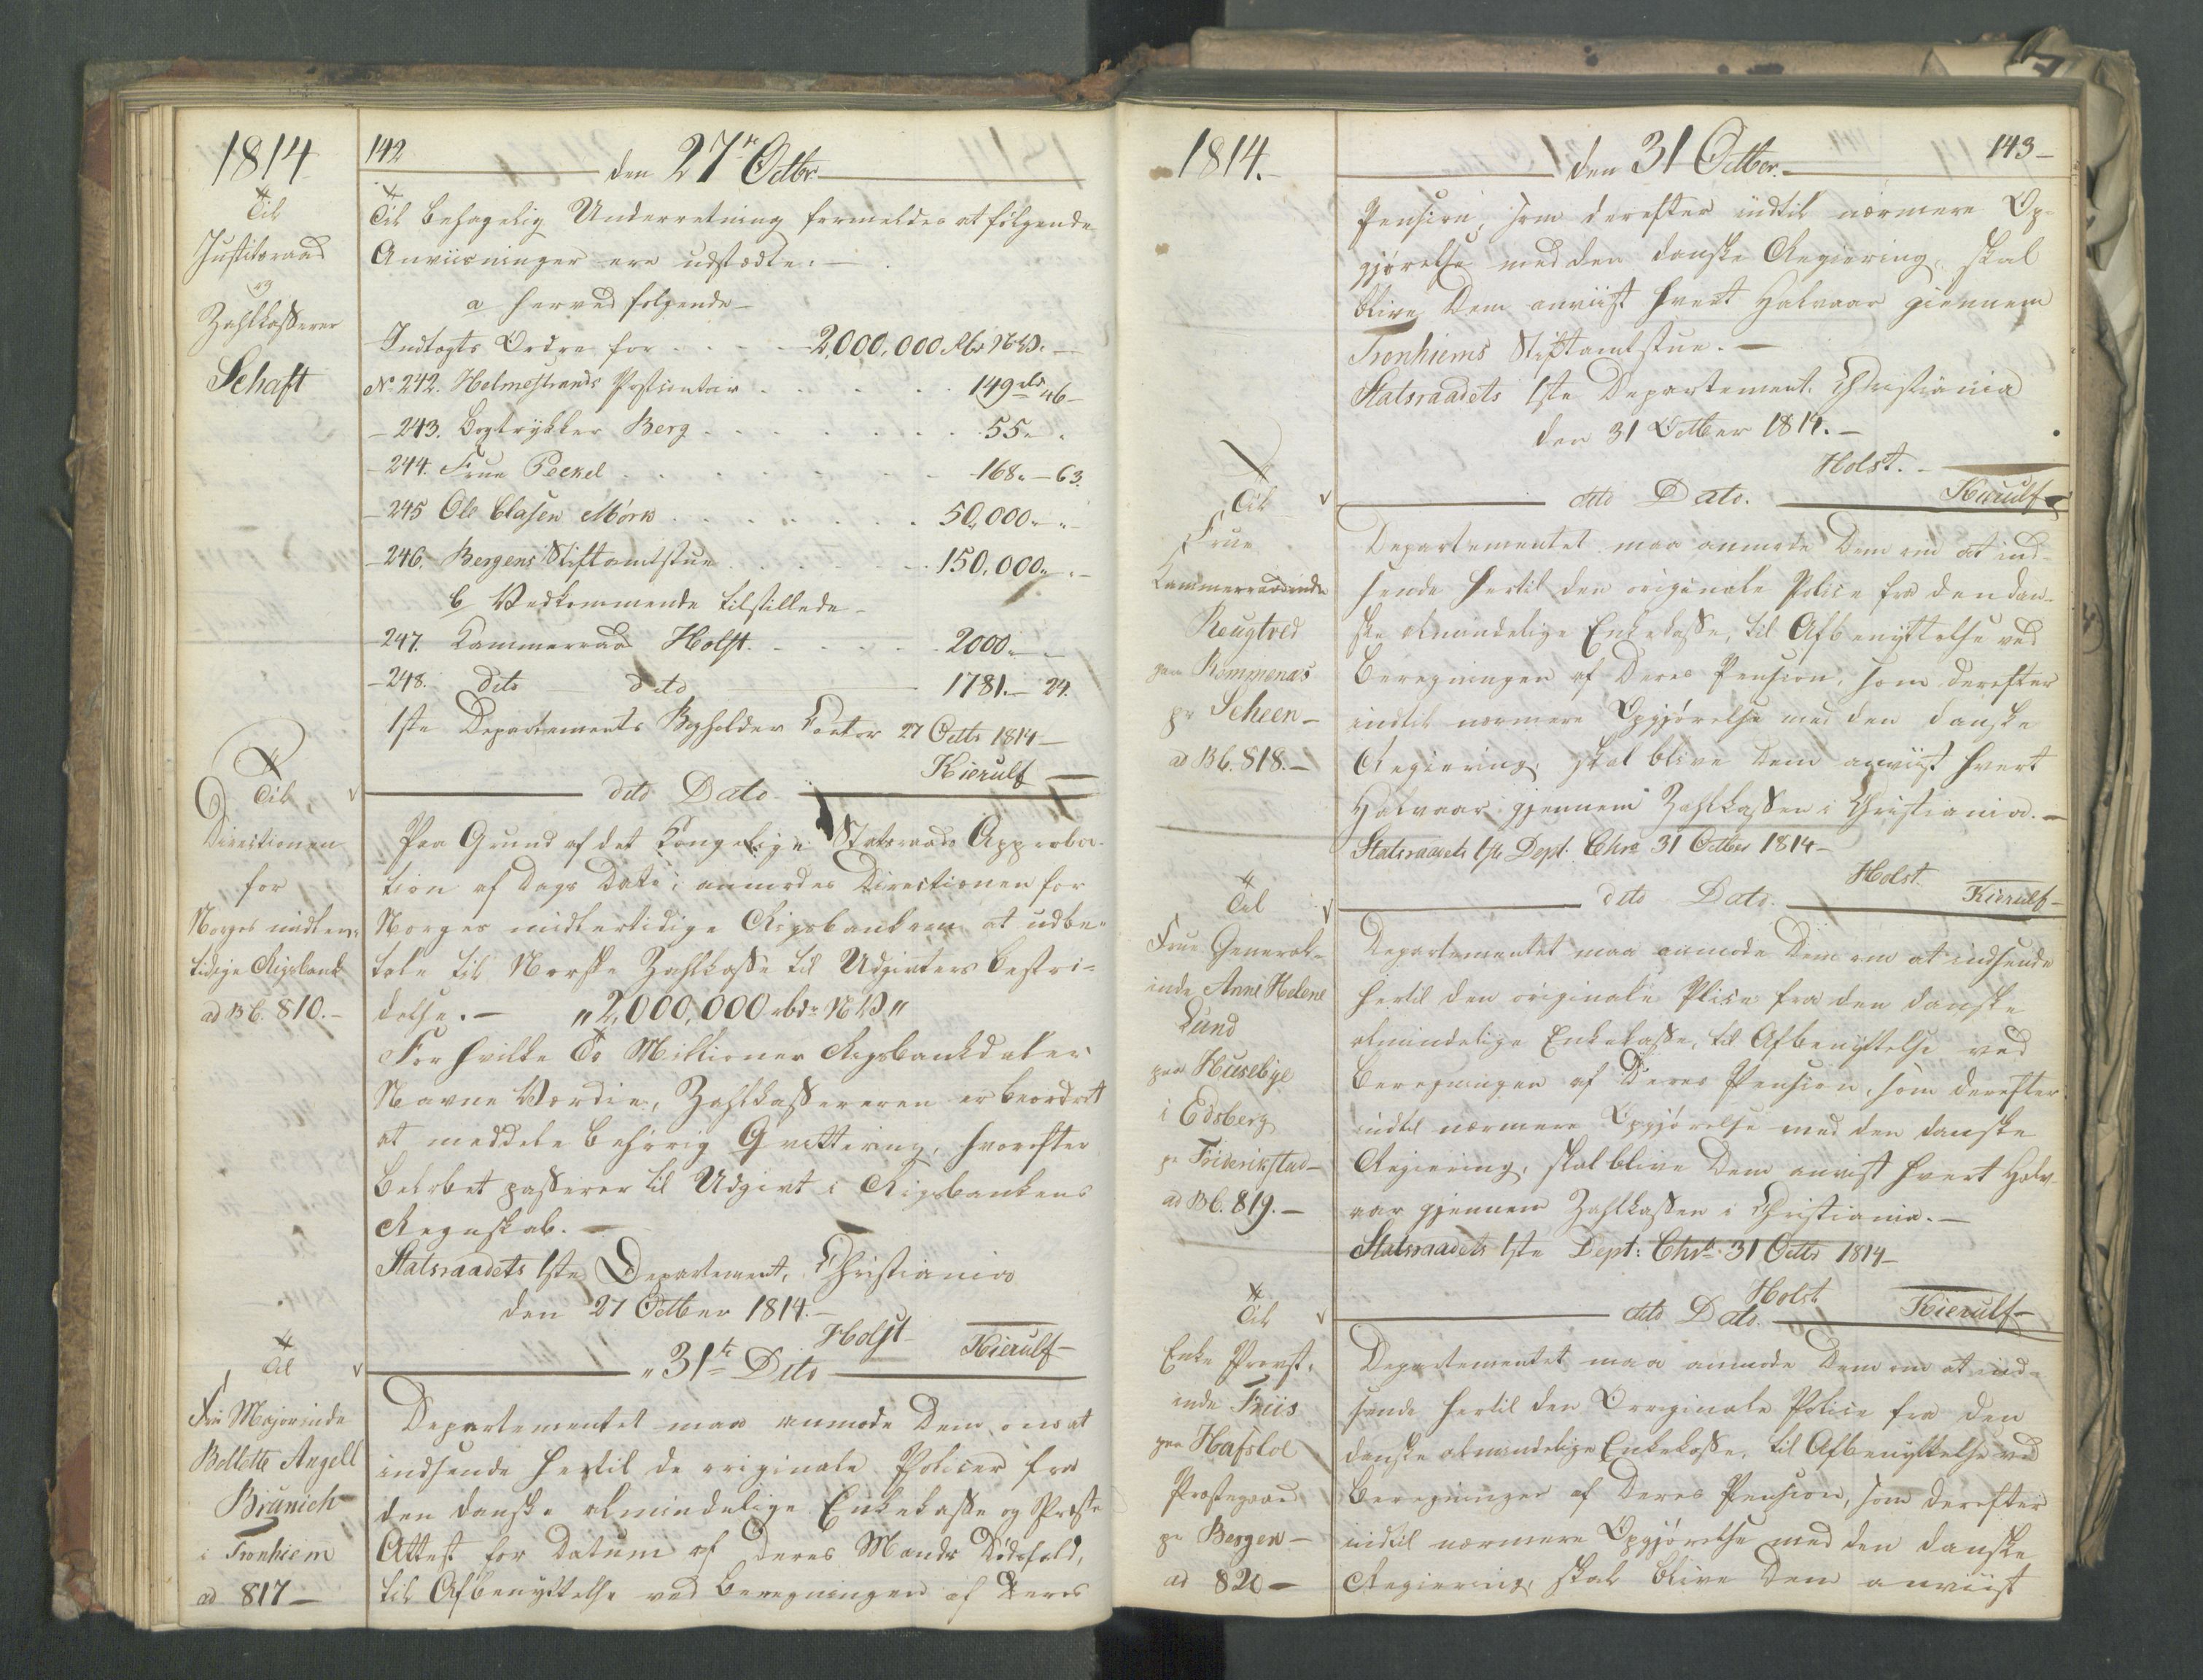 1814
142
den 27de Octbr
Til
Justitsraad
og
Zahlkasserer
Schaft
Til behagelig Underretning formeldes at følgende
Anviisninger ere udstædte:
a herved følgende
Indtægts Ordre for 2,000,000 Rbd NV.
No 242. Holmestrands Postcontoir 149 rd 46
243. Bogtrykker Berg 55
244. Frue Peckel 168 - 63.
245 Ole Clasen Mörk 50,000
246. Bergens Stiftamtstue 150,000
b Vedkommende tilstillede
247. Kammerraad Holst 2000
248. dito dito 1781. 24.
1ste Departements Bogholder Contor 27 Octb 1814
Kierulf
dito Dato
Til
Directionen
for
Norges midler-
tidige Rigsbank
ad B6. 810.
Paa Grund af det Kongelige Statsraads Approba-
tion af Dags Dato, anmodes Directionen for
Norges midlertidige Rigsbank om at udbe-
tale til Norske Zahlkasse til Udgivters Bestri-
delse. "2,000,000 rbdr NV"
For hvilke To Millioner Rigsbankdaler
Navne Værdie, Zahlkassereren er beordret
at meddele behørig Qvittering, hvorefter
Beløbet passerer til Udgivt i Rigsbankens
Regnskab.
Statsraadets 1ste Departement, Christiania
den 27 Octber 1814.
Holst Kierulf
31te Dito
Til
Fru Majorinde
Bollette Angell
Brünich
i Tronhiem
ad 817
Departementet maa anmode Dem om at
indsende hertil de originale Policer fra
den danske almindelige Enkekasse og Præste
Attest for Datum af Deres Mands Dødsfald,
til Afbenyttelse ved Beregningen af Deres
1814.
den 31 Octber.
143
Pension, som derefter indtil nærmere Op-
gjørelse med den danske Regiering, skal
blive Dem anviist hvert Halvaar giennem
Tronhiems Stiftamtstue.
Statsraadets 1ste Departement. Christiania
den 31 Octber 1814.
Holst.
Kierulf
dito Dato.
Til
Frue
Kammerraadinde
Reugtved
paa Rommenæs
pr Scheen
ad B6. 818.
Departementet maa anmode Dem om at ind-
sende hertil den originale Police fra den dan-
ske almindelige Enkekasse, til Afbenyttelse ved
Beregningen af Deres Pension, som derefter
indtil nærmere Opgjørelse med den danske
Regiering, skal blive Dem anviist hvert
Halvaar gjennem Zahlkassen i Christiania.
Statsraadets 1ste Dept. Chra 31 Octber 1814
Holst. Kierulf
dito Dato.
Til
Frue General-
inde Anne Helene
Lund
paa Huusebÿe
i Edsberg
pr Friderikstad
ad B6. 819.
Departementet maa anmode Dem om at indsende
hertil den originale Plise fra den danske
almindelige Enkekasse, til Afbenyttelse ved
Beregningen af Deres Pension, som derefter
indtil nærmere Opgjørelse med den danske
Regiering, skal blive Dem anvist hvert Halv-
aar gjennem Zahlkassen i Christiania.
Statsraadets 1ste Dept: Chra 31 Octbr 1814
Holst Kierulf
dito Dato.
Til
Enke Provst-
inde Friis
paa Hafsloe
Præstegaard
pr Bergen
ad 820
Departementet maa anmode Dem om at ind-
sende hertil den Orriginale Police fra den
danske almindelige Enkekasse, til Afbenyttelse ved
Beregningen af Deres Pension, som derefter
indtil nærmere Opgjørelse med den danske
Regiering, skal blive Dem anviist